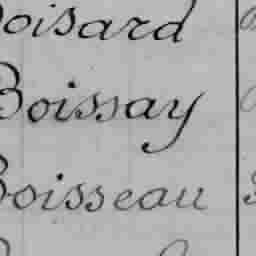 Boisard
Boissay
Boisseau